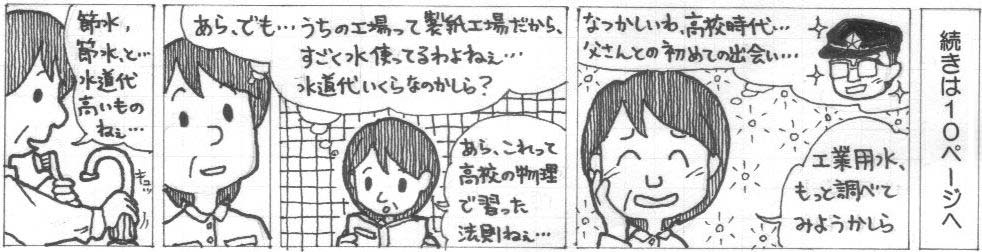 節水、
節水、と…
水道代
高いもの
ねぇ…
キュッ
あら、でも…うちの工場って製紙工場だから、
すごく水使ってるわよねぇ…
水道代いくらなのかしら?
あら、これって
高校の物理
で習った
法則ねぇ…
なつかしいわ、高校時代…
父さんとの初めての出会い…
工業用水、
もっと調べて
みようかしら
続きは10ページへ